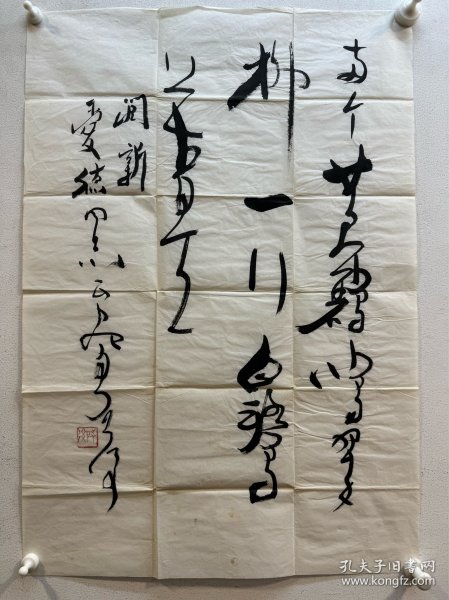 两个黄鹂鸣翠
柳一行白鹭
上青天
润新
爱德同志正之
孔夫子旧书网
www.kongfz.com